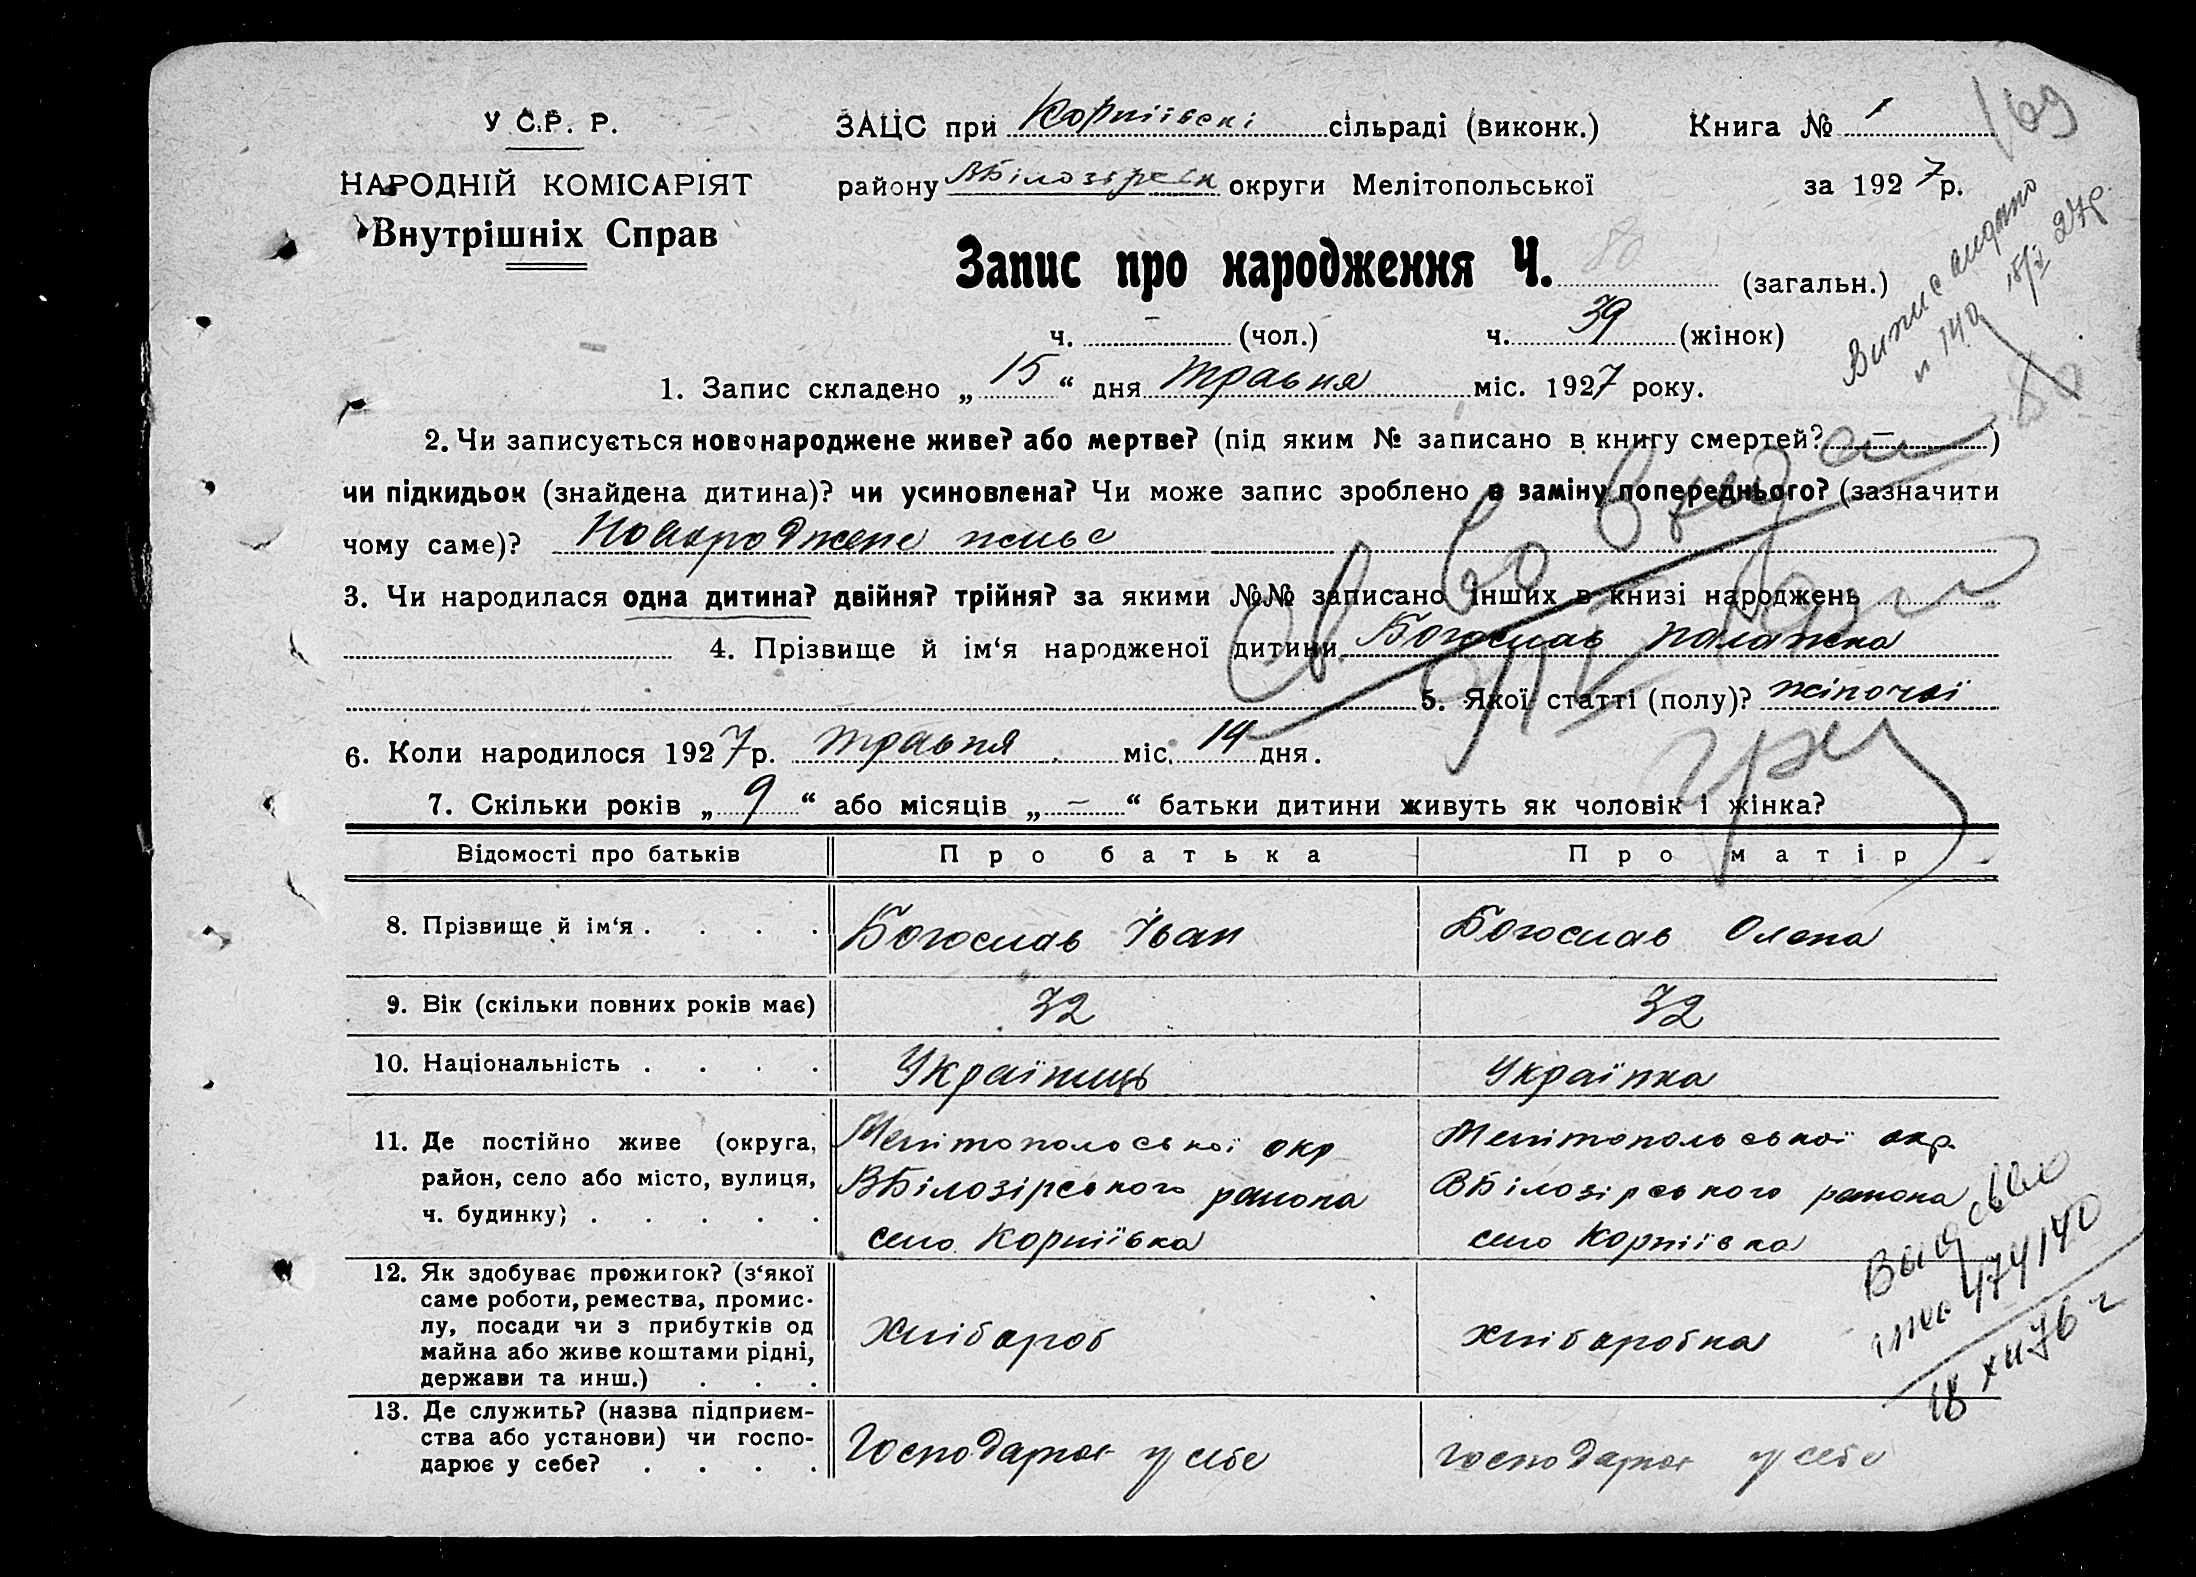 У С. Р. Р.
НАРОДНІЙ КОМІСАРІЯТ
Внутрішніх Справ
ЗАЦС при Корніївскі сільраді (виконк.) Книга № 1
району ВБілозірськ округи Мелітопольської за 1927 р.
169
Запис про народження Ч. 80 (загальн.)
ч. – (чол.) ч. 39 (жінок)
Випис видано
n 140 18/V 27р
1. Запис складено „ 15 “ дня травня міс. 1927 року.
2. Чи записується новонароджене живе? або мертве? (під яким № записано в книгу смертей? – )
чи підкидьок (знайдена дитина)? чи усиновлена? Чи може запис зроблено в заміну попереднього? (зазначити
чому саме)? Новароджене живе
3. Чи народилася одна дитина? двійня? трійня? за якими №№ записано інших в книзі народжень
4. Прізвище й ім‘я народженої дитини Богослав Палажка
5. Якої статті (полу)? жіночої
6. Коли народилося 1927 р. травня міс. 14 дня.
7. Скільки років „ 9 “ або місяців „ – “ батьки дитини живуть як чоловік і жінка?
Відомості про батьків Про батька Про матір
8. Прізвище й ім‘я . . . . Богослав Іван Богослав Олена
9. Вік (скільки повних років має) 32 32
10. Національність . . . . Українець Українка
11. Де постійно живе (округа, Мелітополоської окр Мелітопольської окр.
район, село або місто, вулиця, ВБілозірського района ВБілозірського района
ч. будинку) . . . . . село Корніївка село Корніївка
12. Як здобуває прожиток? (з‘якої
саме роботи, ремества, промис-
лу, посади чи з прибутків од
майна або живе коштами рідні,
держави та инш.) . . .
хлібороб хліборобка
13. Де служить? (назва підприєм-
ства або установи) чи госпо-
дарює у себе? . . . .
Господарює у себе господарює у себе
474140
18 XII 76 г